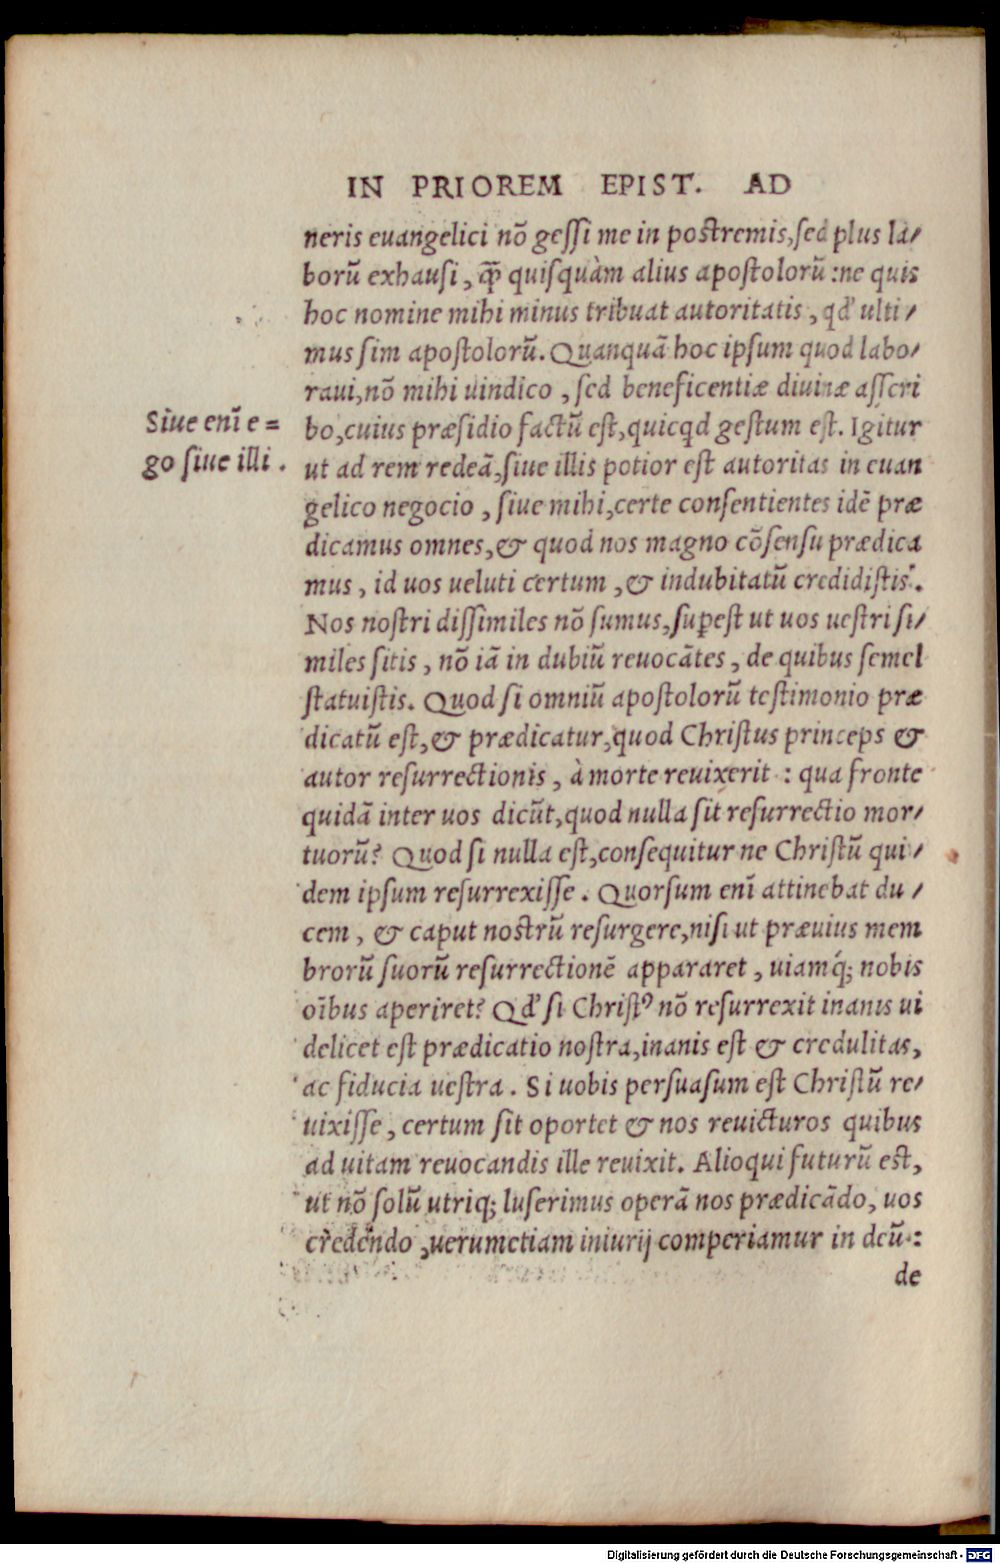 IN PRIOREM EPIST. AD
neris euangelici nõ geſſi me in poſtremis,ſed plus la/
borũ exhauſi, q̃ȝ quiſquàm alius apoſtolorũ :ne quis
hoc nomine mihi minus tribuat autoritatis, qd' ulti/
mus ſim apoſtolorũ. Quanquã hoc ipſum quod labo/
raui,nõ mihi uindico, ſed beneficentiæ diuinæ aſſcri
Siue enĩ e=
bo,cuius præſidio factũ eſt,quicqd geſtum eſt. Igitur
go ſiue illi.
ut ad rem redeã,ſiue illis potior eſt autoritas in euan
gelico negocio, ſiue mihi,certe conſentientes idẽ præ
dicamus omnes,& quod nos magno cõſenſu prædica
mus, id uos ueluti certum, & indubitatũ credidiſtis.
Nos noſtri diſſimiles nõ ſumus,ſuꝑeſt ut uos ueſtri ſi/
miles ſitis, nõ iã in dubiũ reuocãtes, de quibus ſemel
ſtatuiſtis. Quod ſi omniũ apoſtolorũ teſtimonio præ
dicatũ eſt,& prædicatur,quod Chriſtus princeps &
autor reſurrectionis, à morte reuixerit : qua fronte
quidã inter uos dicũt,quod nulla ſit reſurrectio mor/
tuorũ? Quod ſi nulla eſt,conſequitur ne Chriſtũ qui/
dem ipſum reſurrexiſſe. Quorſum enĩ attinebat du/
cem, & caput noſtrũ reſurgere,niſi ut præuius mem
brorũ ſuorũ reſurrectionẽ appararet, uiamq́; nobis
oĩbus aperiret? Qd' ſi Chriſtꝰ nõ reſurrexit inanis ui
delicet eſt prædicatio noſtra,inanis eſt & credulitas,
ac fiducia ueſtra. Si uobis perſuaſum eſt Chriſtũ re/
uixiſſe, certum ſit oportet & nos reuicturos quibus
ad uitam reuocandis ille reuixit. Alioqui futurũ eſt,
ut nõ ſolũ utriq; luſerimus operã nos prædicãdo, uos
credendo,uerumetiam iniurij comperiamur in deũ:
de
Digitalisierung gefördert durch die Deutsche Forschungsgemeinschaft - DFG